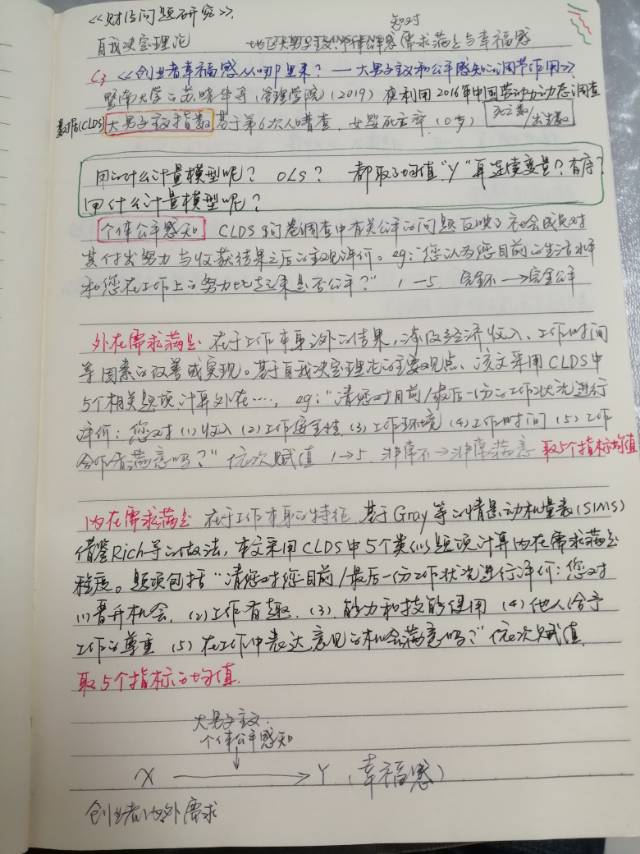 《财经问题研究》.
自我决定理论 地区大男子主义.个体公平感知对需求满足与幸福感
C3 《创业者幸福感从哪里来?—大男子主义和公平感知的调节作用》
暨南大学的苏晓华等,管理学院(2019)夜利用2016年中国劳动力动态调查
数据(CLDS) 大男子主义指数 基于第6次人口普查,女婴死亡率(0岁) 死亡数/出生数
用的什么计量模型呢? OLS? 都取了均值"Y"再连续变量?有序?
用什么计量模型呢?
个体公平感知 CLDS的问卷调查中有关公平的问题反映了社会成员对
其付出努力与收获结果之后的主观评价。eg:"您认为您目前的生活水平
和您在工作上的努力比起来是否公平?" 1→5 完全不→完全公平
外在需求满足 在于工作本身之外的结果,涉及经济收入、工作时间
等因素的改善或实现。基于自我决定理论的主要观点、该文采用CLDS中
5个相关题项计算外在…,eg:"请您对目前/最后一份的工作状况进行
评价:您对(1)收入(2)工作安全性(3)工作环境(4)工作时间(5)工作
合作者满意吗?"依次赋值 1→5.非常不→非常满意 取5个指标均值
内在需求满足 在于工作本身的特征 基于Gray等的情景动机量表(SIMS)
借鉴Rich等的做法,本文采用CLDS中5个类似题项计算内在需求满足
程度。题项包括"请您对您目前/最后一份工作状况进行评价:您对
(1)晋升机会.(2)工作有趣.(3).能力和技能使用(4)他人给予
工作的尊重(5)在工作中表达意见的机会满意吗?"依次赋值.
取5个指标的均值.
大男子主义.
个体公平感知
X → Y(幸福感)
创业者内外需求